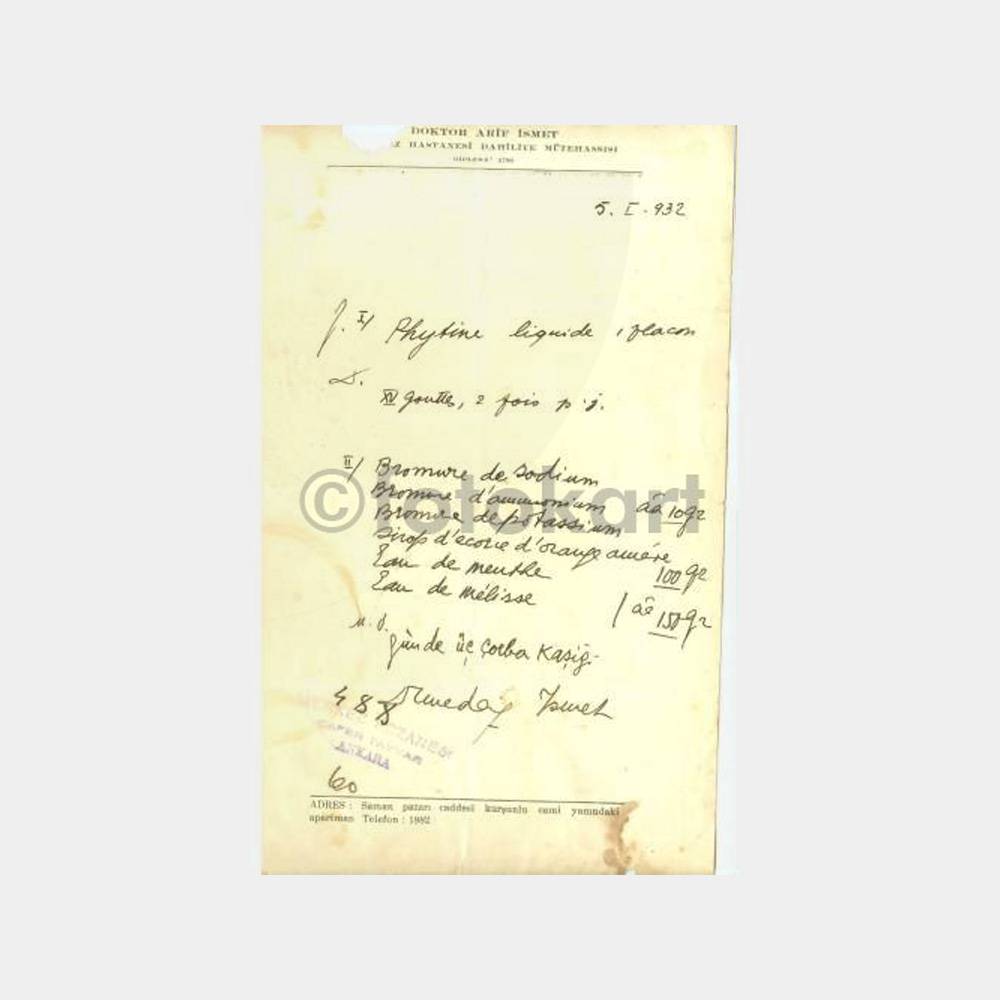 DOKTOR ARİF İSMET
HASTANESİ DAHİLİYE MÜTEHASSISI
5. I. 932
I/ Phytine liquide 1 flacon
D.
XV gouttes, 2 fois p.j.
II/ Bromure de sodium
Bromure d'ammonium
Bromure de potassium āā 10 gr
Sirop d'écorce d'orange amère
100 gr
Eau de menthe
Eau de mélisse
āā 150 gr
©fotokart
M. D.
Günde üç çorba kaşığı
488 İsmet
ANKARA
60
ADRES : Saman pazarı caddesi kurşunlu cami yanındaki
apartman Telefon : 1982